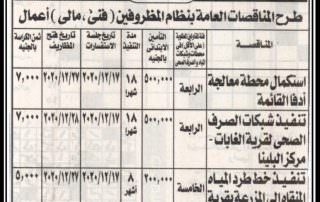 طرح المناقصات العامة بنظام المظروفين ( فنى ، مالى ) أعمال
المناقصة
التأمين الابتدائى بالجنيه
مدة التنفيذ
تاريخ جلسة الاستفسارات
تاريخ فتح المظاريف
ثمن الكراسة بالجنيه
استكمال محطة معالجة أدفا القائمة
الرابعة
٥٠٠,٠٠٠
١٨ شهرا
٢٠٢٠/١٢/١٧
٢٠٢٠/١٢/٢٧
٧,٠٠٠
تنفيذ شبكات الصرف الصحى لقرية الغابات - مركز البلينا
الرابعة
٥٠٠,٠٠٠
١٨ شهرا
٢٠٢٠/١٢/١٧
٢٠٢٠/١٢/٢٨
٧,٠٠٠
تنفيذ خط طرد المياه المنقاه إلى المزرعة بقرية
الخامسة
٢٠٠,٠٠٠
٨ أشهر
٢٠٢٠/١٢/١٧
٢٠٢٠/١٢/٢٧
٥,٠٠٠